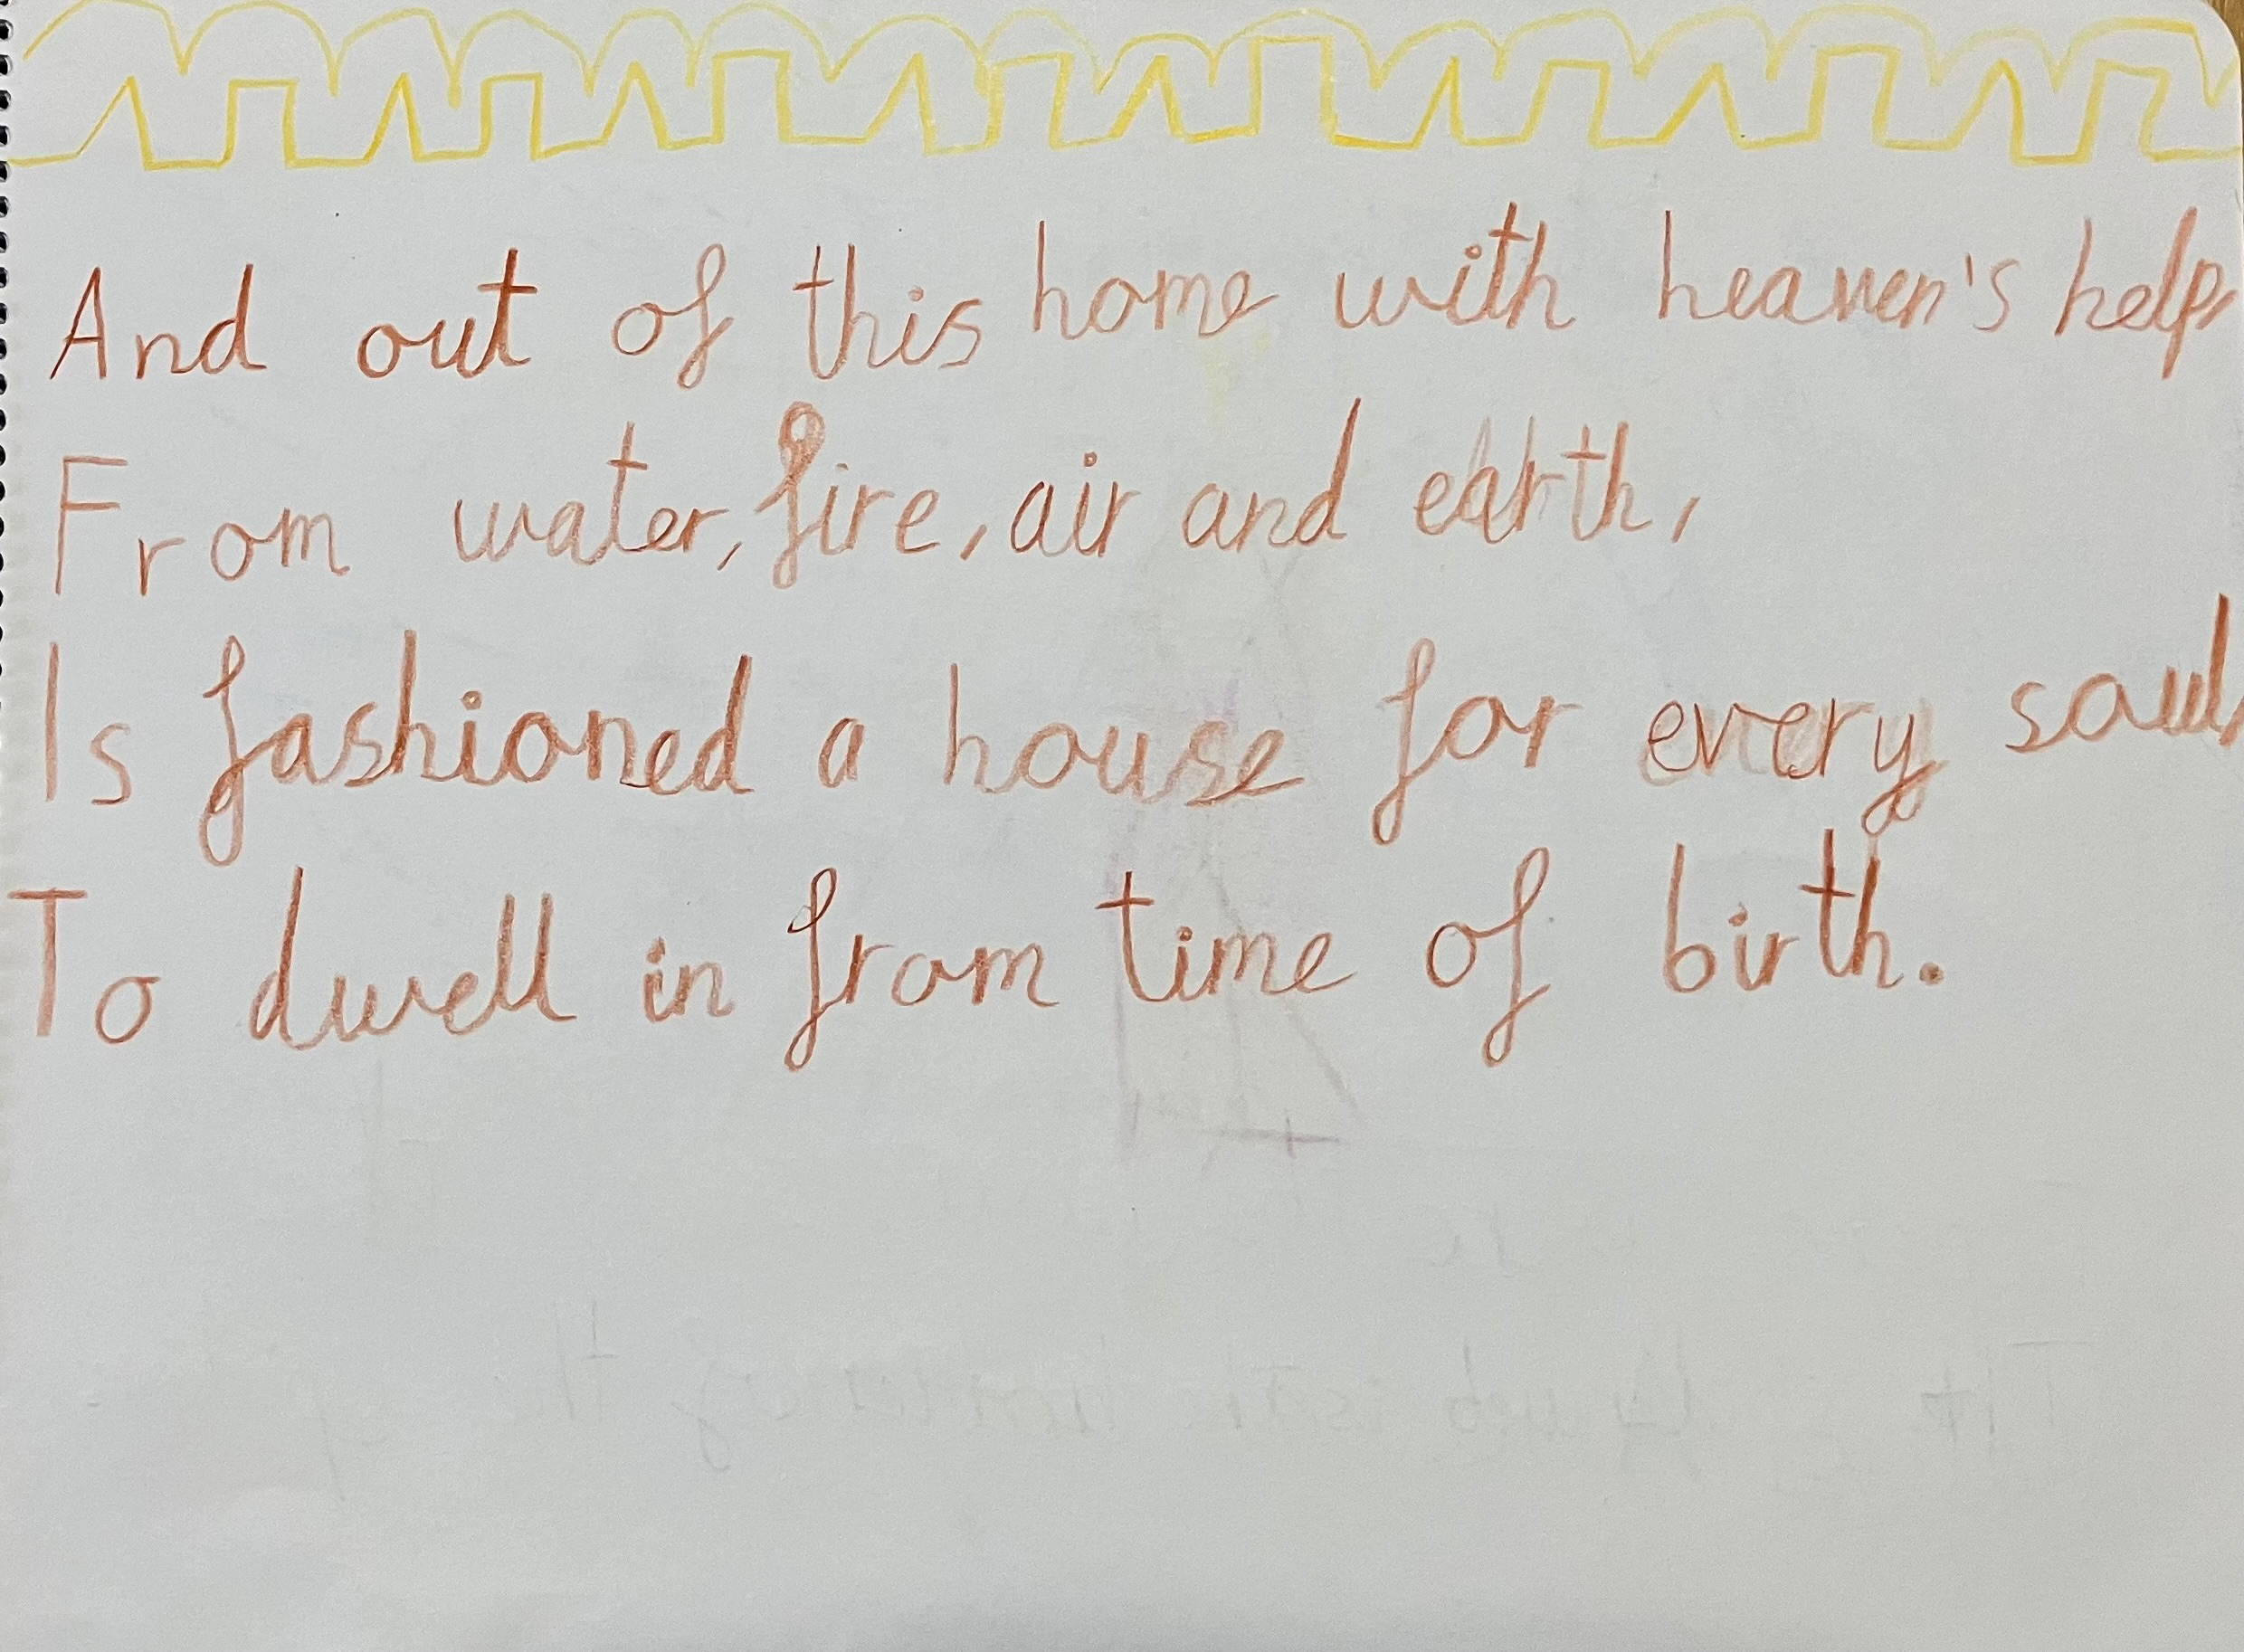 And out of this home with heaven's help,
From water, fire, air and earth,
Is fashioned a house for every soul,
To dwell in from time of birth.